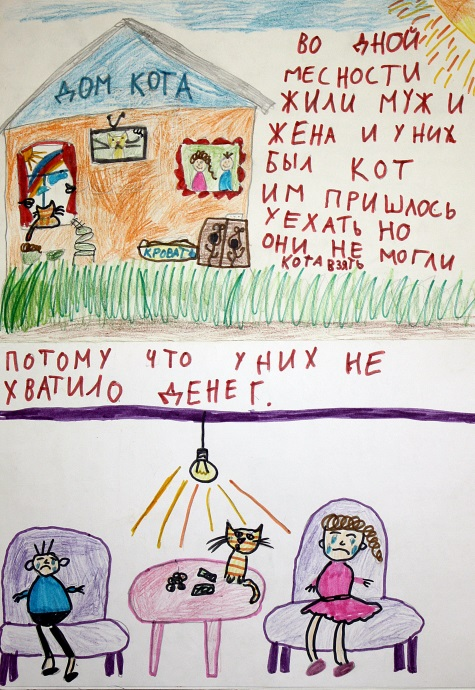 ДОМ КОТА
ВО ДНОЙ
МЕСНОСТИ
ЖИЛИ МУЖ И
ЖЕНА И У НИХ
БЫЛ КОТ
ИМ ПРИШЛОСЬ
УЕХАТЬ НО
ОНИ НЕ МОГЛИ
КОТА ВЗЯТЬ
КРОВАТЬ
ПОТОМУ ЧТО У НИХ НЕ
ХВАТИЛО ДЕНЕГ.